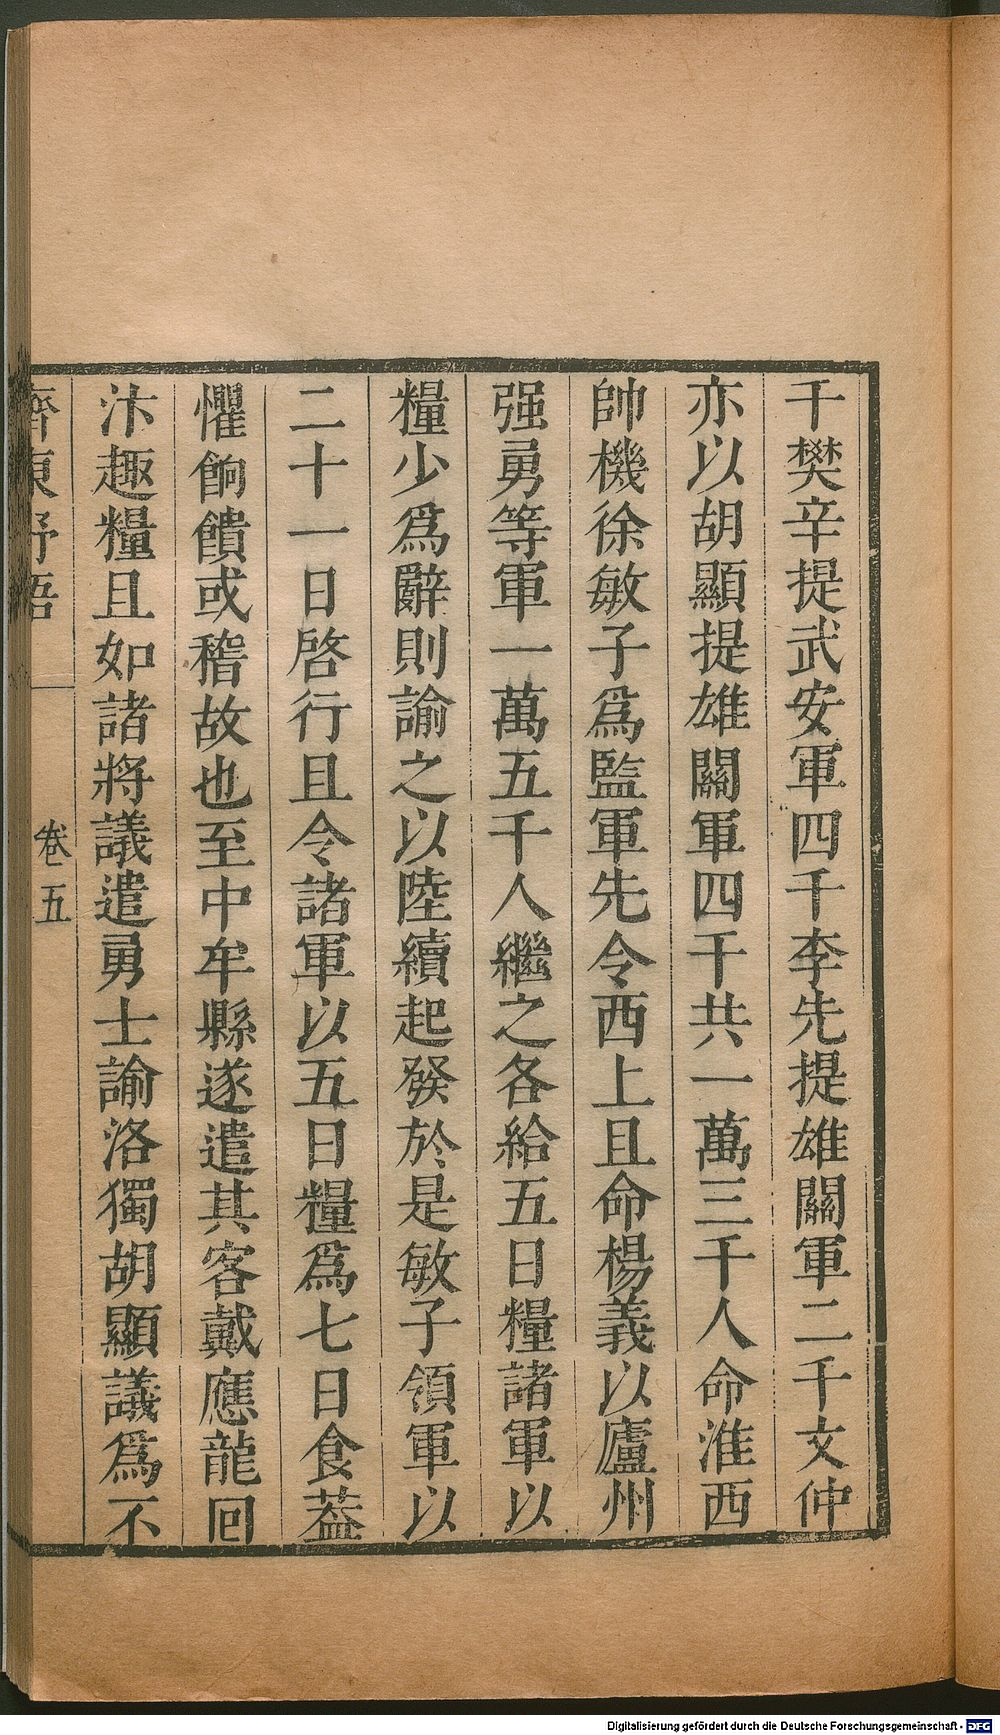 千樊辛提武安軍四千李先提雄關軍二千文仲
亦以胡顯提雄關軍四千共一萬三千人命淮西
帥機徐敏子爲監軍先令西上且命楊義以廬州
强勇等軍一萬五千人繼之各給五日糧諸軍以
糧少爲辭則諭之以陸續起發於是敏子領軍以
二十一日啓行且令諸軍以五日糧爲七日食葢
懼餉饋或稽故也至中牟縣遂遣其客戴應龍囘
汴趣糧且如諸將議遣勇士諭洛獨胡顯議爲不
齊東野語 卷五
Digitalisierung gefördert durch die Deutsche Forschungsgemeinschaft - DFG